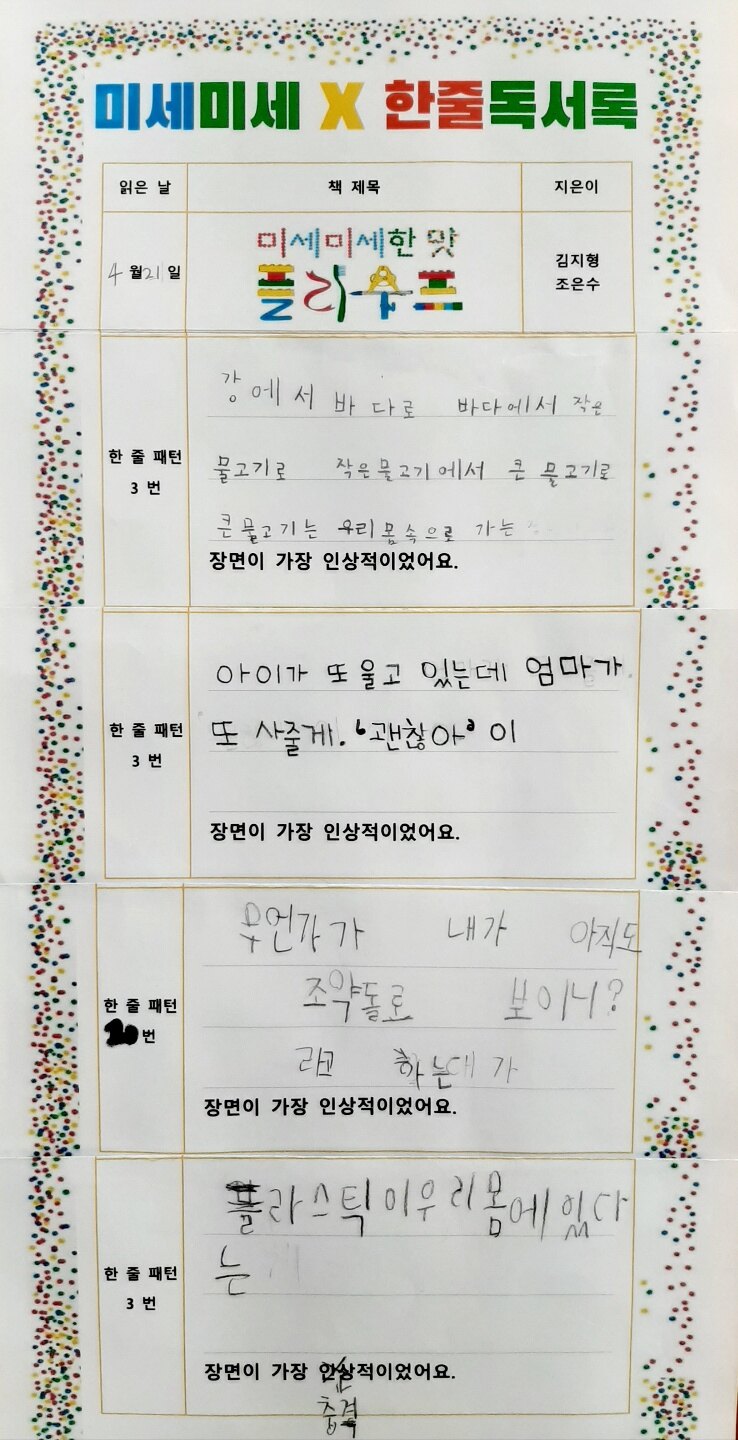 미세미세 X 한줄독서록
읽은 날 책 제목 지은이
미세미세한 맛
플라수프
4월 21일
김지형
조은수
강에서 바다로 바다에서 작은
물고기로 작은물고기에서 큰 물고기로
한 줄 패턴
3 번
큰물고기는 우리몸속으로 가는
장면이 가장 인상적이었어요.
아이가 또 울고 있는데 엄마가
한 줄 패턴
3 번
또 사줄게. '괜찮아' 이
장면이 가장 인상적이었어요.
내가 아직도
한 줄 패턴
번
조약돌로 보이니?
라고 하는대 가
장면이 가장 인상적이었어요.
플라스틱이우리몸에있다
는
한 줄 패턴
3 번
장면이 가장 인상적이었어요.
충격